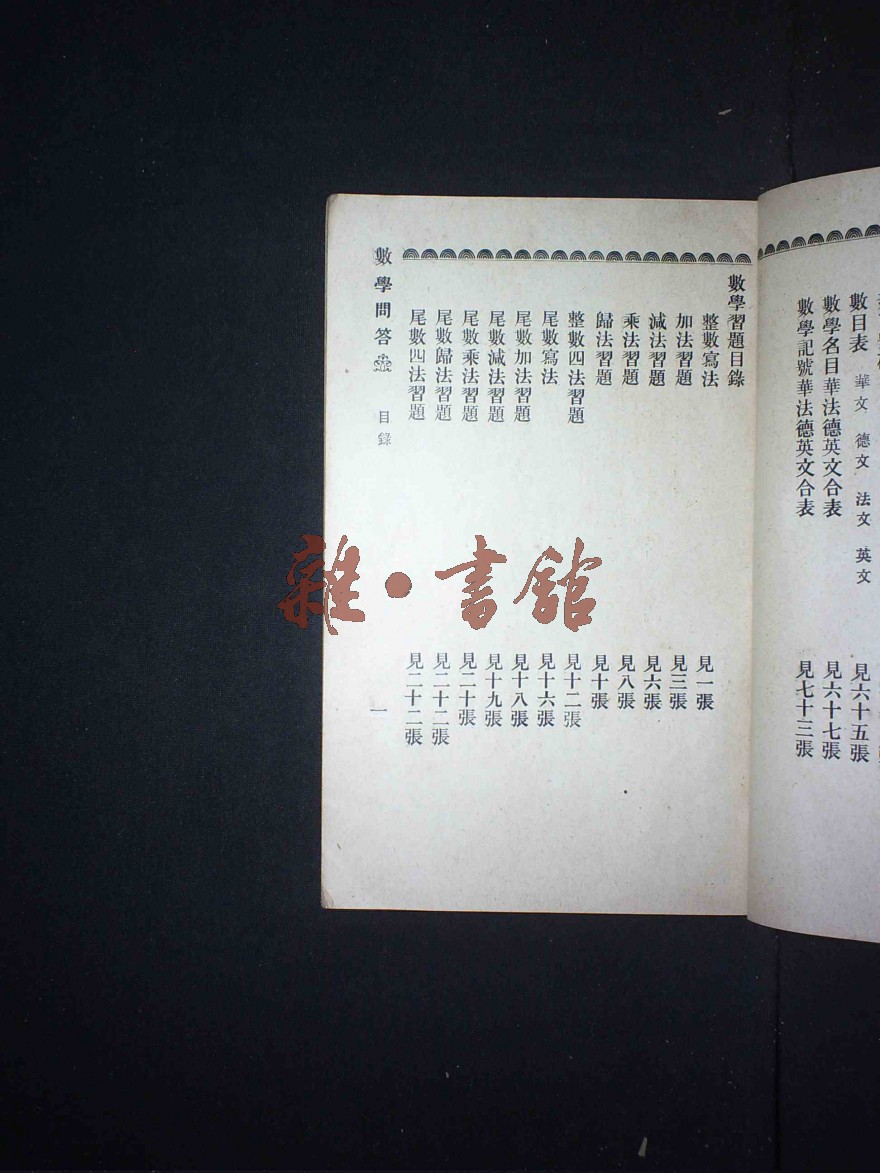 數目表 華文 德文 法文 英文 見六十五張
數學名目華法德英文合表 見六十七張
數學記號華法德英文合表 見七十三張
數學習題目錄
整數寫法 見一張
加法習題 見三張
減法習題 見六張
乘法習題 見八張
歸法習題 見十張
整數四法習題 見十二張
尾數寫法 見十六張
尾數加法習題 見十八張
尾數減法習題 見十九張
尾數乘法習題 見二十張
尾數歸法習題 見二十二張
尾數四法習題 見二十二張
數學問答 目錄 一
雜·書館